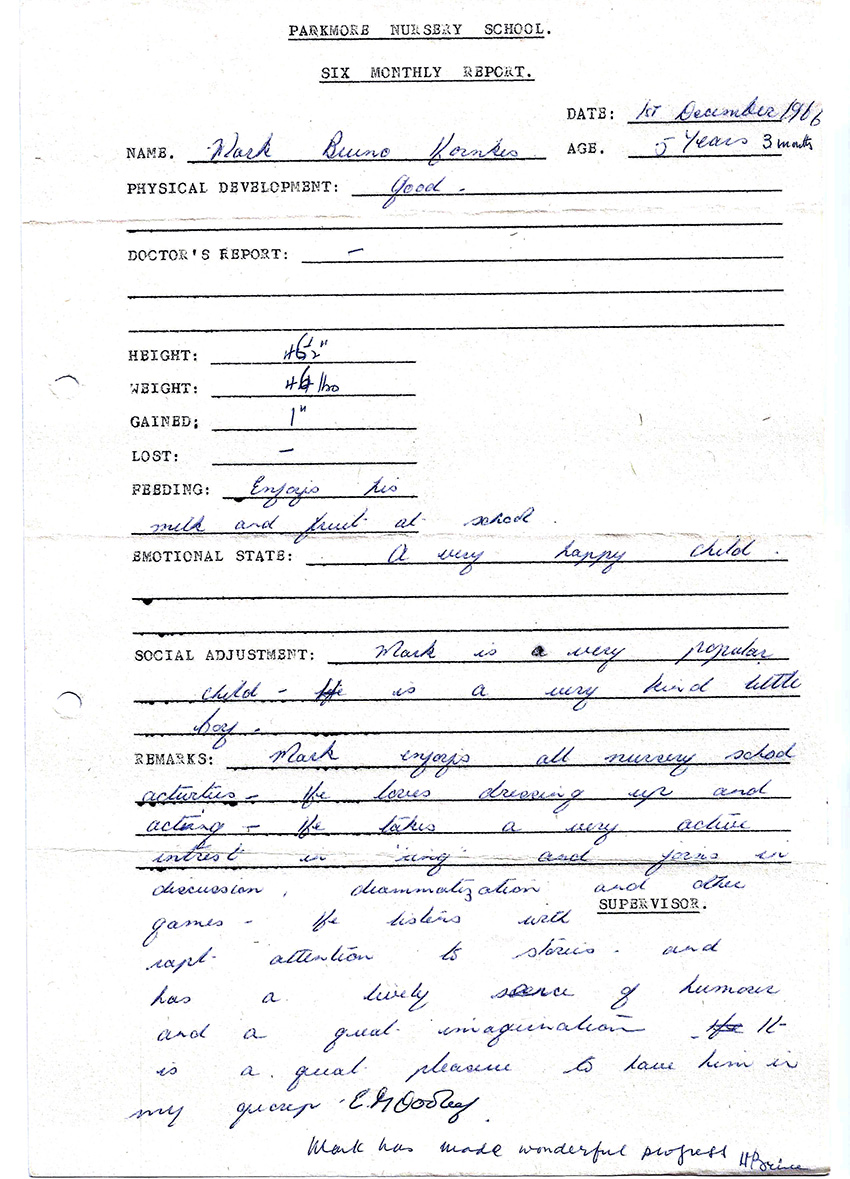 PARKMORE NURSERY SCHOOL.
SIX MONTHLY REPORT.
DATE: 1st December 1966
NAME. Mark Bruno Kornkes AGE. 5 Years 3 months
PHYSICAL DEVELOPMENT: Good -
DOCTOR'S REPORT: -
HEIGHT: 46½"
WEIGHT: lbs
GAINED; 1"
LOST: -
FEEDING: Enjoys his
milk and fruit at school.
EMOTIONAL STATE: A very happy child.
SOCIAL ADJUSTMENT: Mark is a very popular
child - He is a very kind little
boy.
REMARKS: Mark enjoys all nursery school
activities - He loves dressing up and
acting - He takes a very active
intrest in 'ring' and joins in
discussion, drammatization and other
SUPERVISOR.
games - He listens with
rapt attention to stories and
has a lively sence of humour
and a great imagination He It
is a great pleasure to have him in
my group - E. M Dooley.
Mark has made wonderful progress